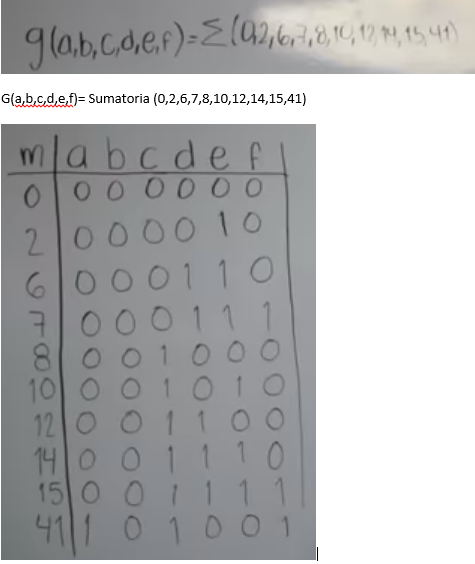 g(a,b,c,d,e,f)=Σ(0,2,6,7,8,10,12,14,15,41)
G(a,b,c,d,e,f)= Sumatoria (0,2,6,7,8,10,12,14,15,41)
m a b c d e f
0 0 0 0 0 0 0
2 0 0 0 0 1 0
6 0 0 0 1 1 0
7 0 0 0 1 1 1
8 0 0 1 0 0 0
10 0 0 1 0 1 0
12 0 0 1 1 0 0
14 0 0 1 1 1 0
15 0 0 1 1 1 1
41 1 0 1 0 0 1